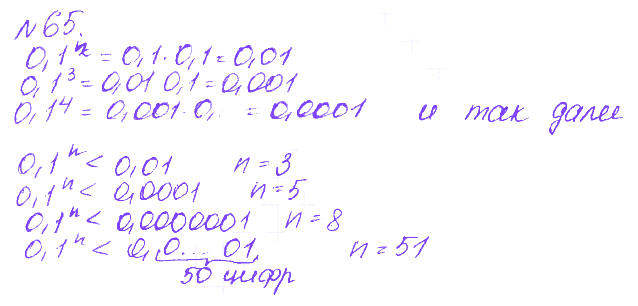 №65.
0,1ⁿ = 0,1·0,1 = 0,01
0,1³ = 0,01 0,1 = 0,001
0,1⁴ = 0,001·0, = 0,0001 и так далее
0,1ⁿ < 0,01 n = 3
0,1ⁿ < 0,0001 n = 5
0,1ⁿ < 0,0000001 n = 8
0,1ⁿ < 0,0...01, n = 51
50 цифр